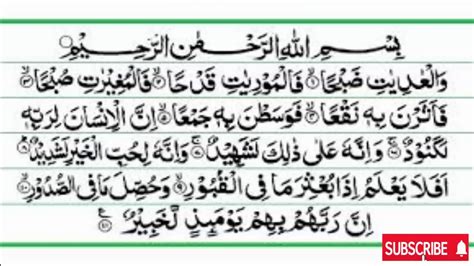 بِسْمِ اللهِ الرَّحْمٰنِ الرَّحِيْمِ
وَالْعٰدِيٰتِ ضَبْحًا ۙ۝۱ فَالْمُوْرِيٰتِ قَدْحًا ۙ۝۲ فَالْمُغِيْرٰتِ صُبْحًا ۙ۝۳
فَاَثَرْنَ بِهٖ نَقْعًا ۙ۝۴ فَوَسَطْنَ بِهٖ جَمْعًا ۙ۝۵ اِنَّ الْاِنْسَانَ لِرَبِّهٖ
لَكَنُوْدٌ ۚ۝۶ وَاِنَّهٗ عَلٰى ذٰلِكَ لَشَهِيْدٌ ۚ۝۷ وَاِنَّهٗ لِحُبِّ الْخَيْرِ لَشَدِيْدٌ ؕ۝۸
اَفَلَا يَعْلَمُ اِذَا بُعْثِرَ مَا فِى الْقُبُوْرِ ۙ۝۹ وَحُصِّلَ مَا فِى الصُّدُوْرِ ۙ۝۱۰
اِنَّ رَبَّهُمْ بِهِمْ يَوْمَئِذٍ لَّخَبِيْرٌ ۝۱۱
SUBSCRIBE